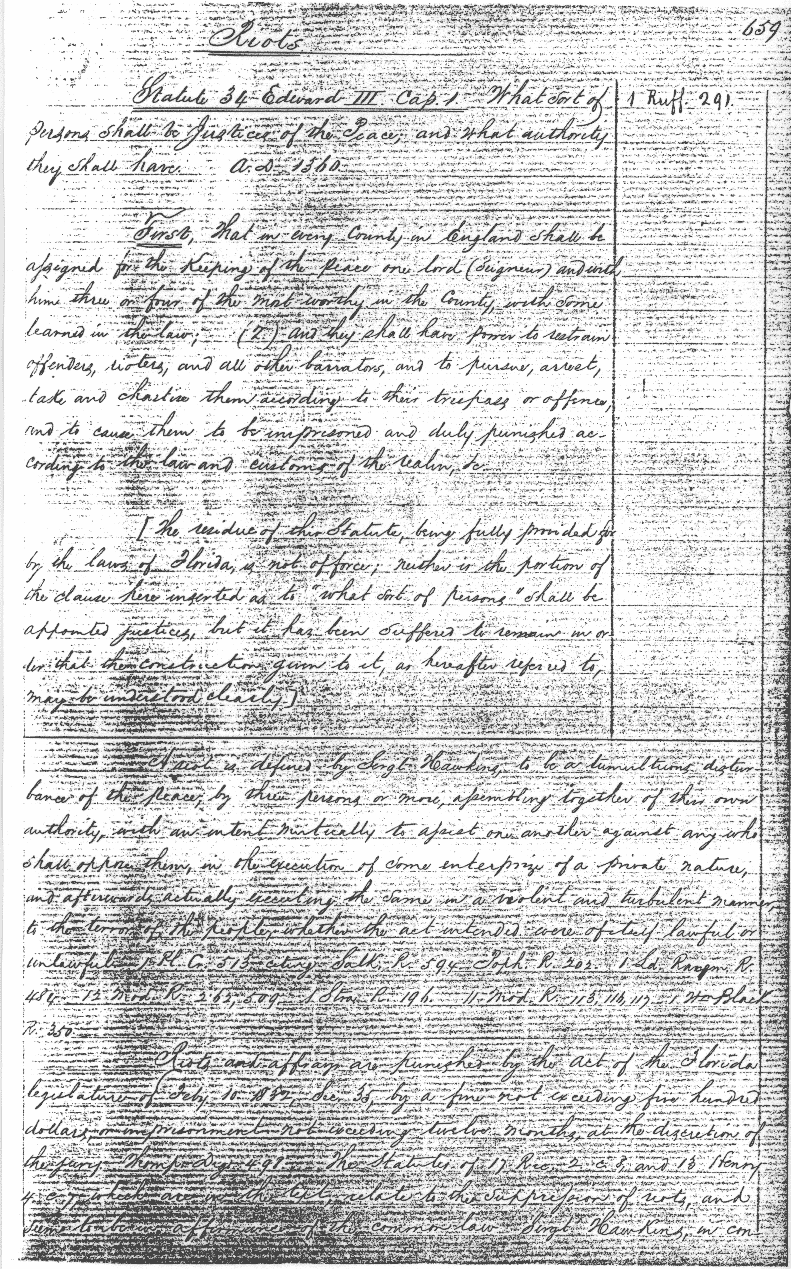 659
Riots
Statute 34 Edward III Cap. 1. What sort of
1 Ruff. 291
Persons shall be Justices of the Peace; and what authority
they shall have. A.D. 1360.
First, That in every County in England shall be
assigned for the Keeping of the Peace one lord (Seigneur) and with
him three or four of the most worthy in the County, with some
learned in the law; (2) and they shall have power to restrain
offenders, rioters, and all other barrators, and to pursue, arrest,
take and chastise them according to their trespass or offence,
and to cause them to be imprisoned and duly punished ac-
cording to the law and customs of the realm, &c.
[The residue of this Statute, being fully provided for
by the laws of Florida, is not of force; neither is the portion of
the clause here inserted as to "what sort of persons" shall be
appointed justices, but it has been suffered to remain in or-
der that the construction given to it, as hereafter referred to,
may be understood clearly.]
A riot is defined by Sergt. Hawkins, to be a tumultuous distur-
bance of the peace, by three persons or more, assembling together of their own
authority, with an intent mutually to assist one another against any who
shall oppose them, in the execution of some enterprize of a private nature,
and afterwards actually executing the same in a violent and turbulent manner,
to the terror of the people, whether the act intended were of itself lawful or
unlawful. 1 Pl. C. 513 citing Salk. R. 594 Poph. R. 202. 1 Ld. Raym. R.
484 12 Mod. R. 262, 509 1 Stra. R. 196. 11 Mod. R. 113, 116, 117 1 Wm Black
R. 350
Riots and affrays are punished by the act of the Florida
legislature of Feby. 10 1832, Sec. 35, by a fine not exceeding five hundred
dollars, or imprisonment not exceeding twelve months, at the discretion of
the jury. Thomp. Dig. 491. The Statutes of 17 Ric. 2 c. 8, and 13 Henry
4. c. 7, which are in the text, relate to the suppression of riots, and
seem to be in affirmance of the common law. Sergt. Hawkins, in con